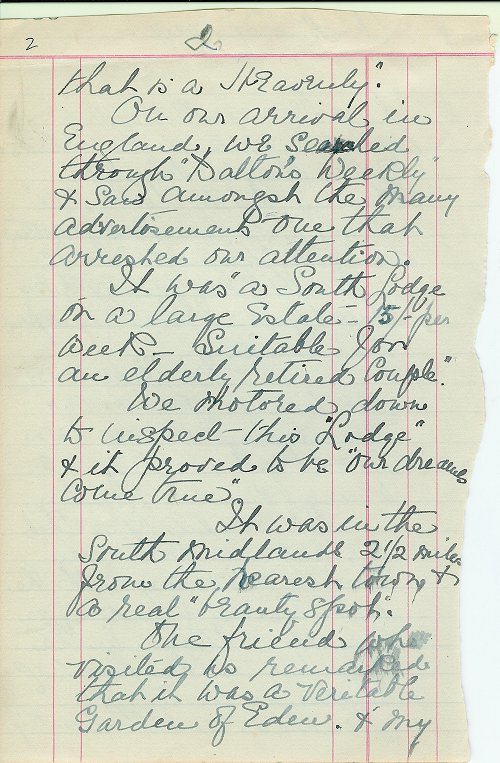 2 2
that is a Heavenly".
On our arrival in
England, we searched
through "Dalton's Weekly"
& saw amongst the many
advertisements one that
arrested our attention.
It was "a South Lodge
on a large Estate – 15/- per
week – Suitable for
an elderly retired couple".
We motored down
to inspect this "Lodge"
& it proved to be "our dreams
come true"
It was in the
South Midlands 2 1/2 miles
from the nearest town, &
a real "beauty spot".
The friend who
visited us remarked
that it was a veritable
Garden of Eden. & my